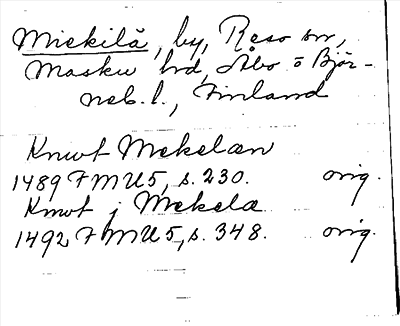 Miekilä, by, Reso sn,
Masku hrd, Åbo o Björ-
neb. l., Finland
Knwt Mekelæn
1489 FMU5, s. 230. orig.
Knwt j Mekelæ
1492 FMU5, s. 348. orig.